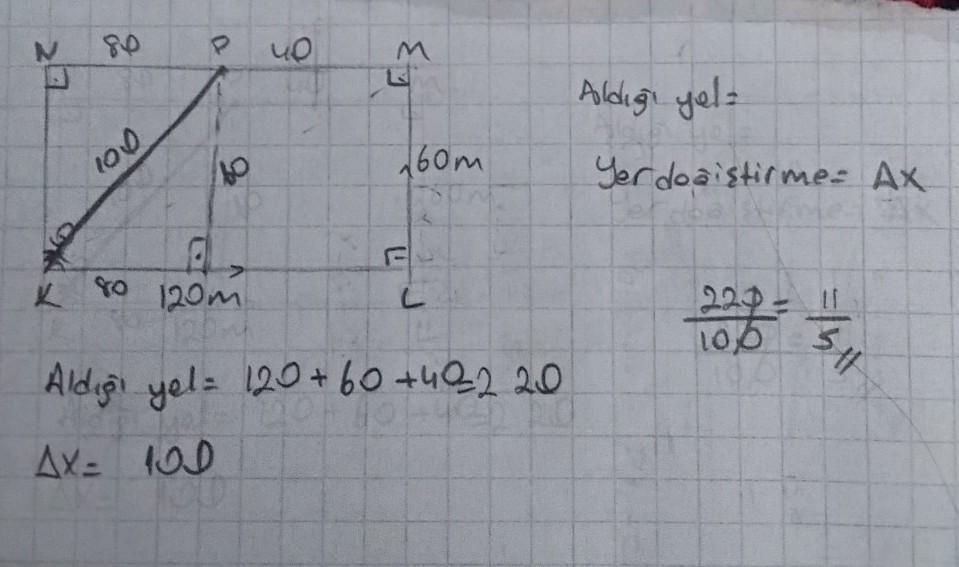 N 80 P 40 M
Aldığı yol=
100 60 60m
Yer doğiştirme= Δx
K 80 120m L
220/100 = 11/5 //
Aldığı yol= 120+60+40=220
Δx= 100